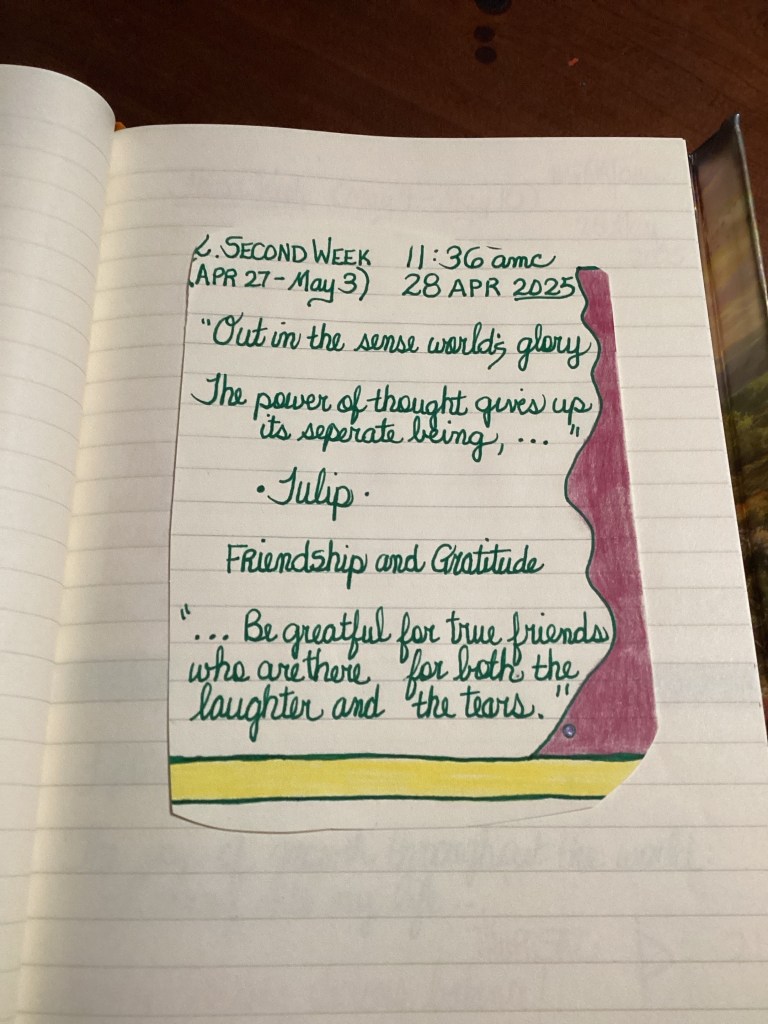 2. SECOND WEEK 11:36 amc
(APR 27 - May 3) 28 APR 2025
"Out in the sense world's glory
The power of thought gives up
its seperate being, ... "
• Tulip •
Friendship and Gratitude
"... Be greatful for true friends
who are there for both the
laughter and the tears."